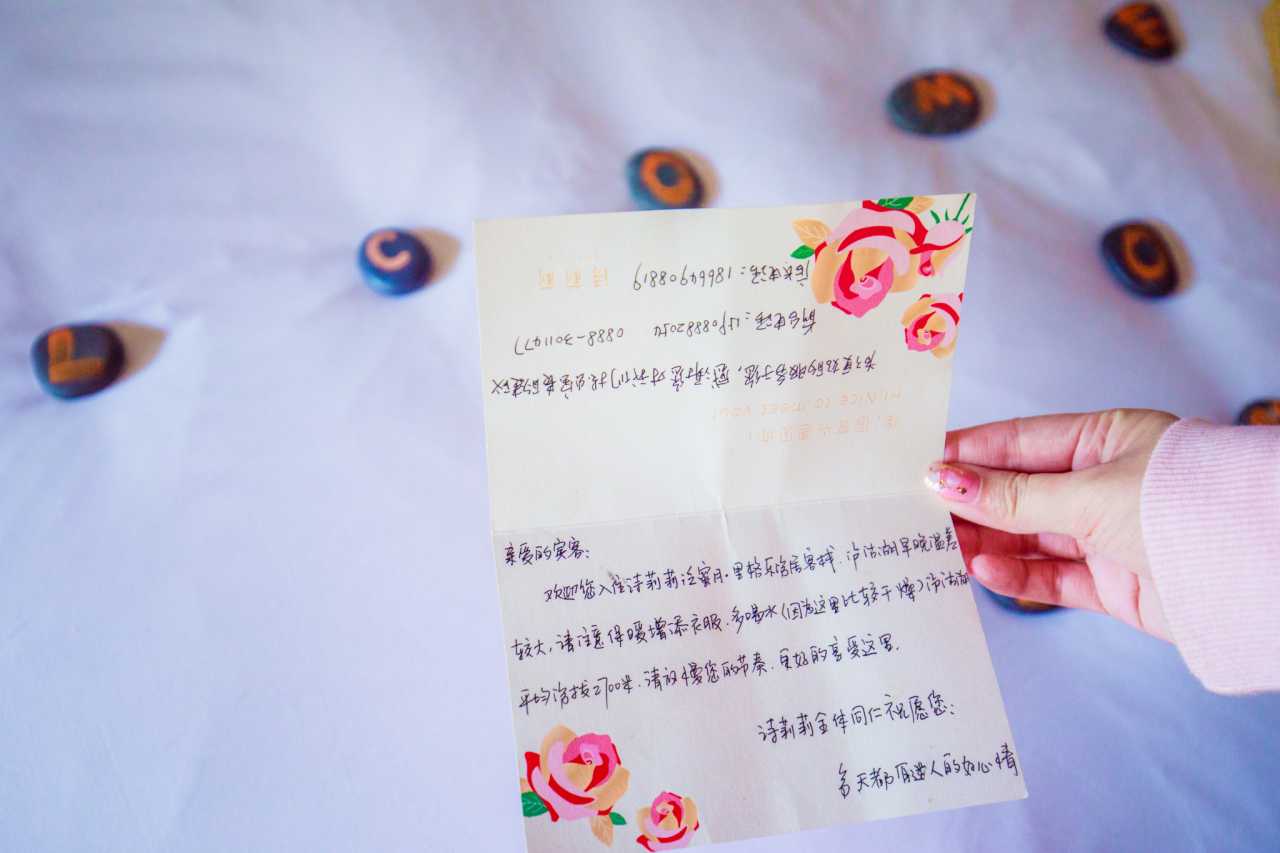 L
C
O
嗨,很高兴遇见你!
HI,NICE TO MEET YOU!
为了更好的服务于您,感谢您对我们提出宝贵的建议
前台电话:15908882054 0888-3011477
店长电话:18669908819 诗莉莉
亲爱的宾客:
欢迎您入住诗莉莉泛蜜月·里格 居客栈.泸沽湖早晚温差
较大,请注意保暖增添衣服.多喝水(因为这里比较干燥)泸沽湖
平均海拔2700米.请放慢您的节奏.更好的享受这里.
诗莉莉全体同仁祝愿您:
每天都有迷人的好心情